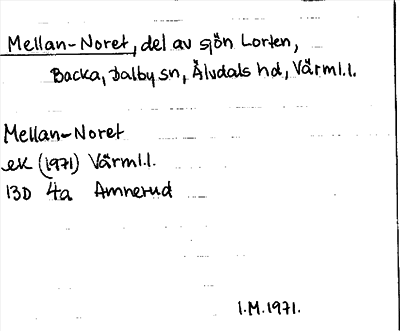 Mellan-Noret, del av sjön Lorten,
Backa, Dalby sn, Älvdals hd, Värml.l.
Mellan-Noret
ek (1971) Värml.l.
13D 4a Amnerud
I.M.1971.